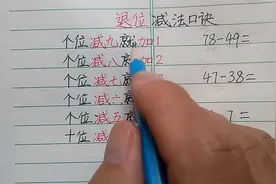 退位减法口诀
个位减九就加1 78-49=
个位减八 加2
47-38=
个位减七
个位减六
个位减五 7=
十位减